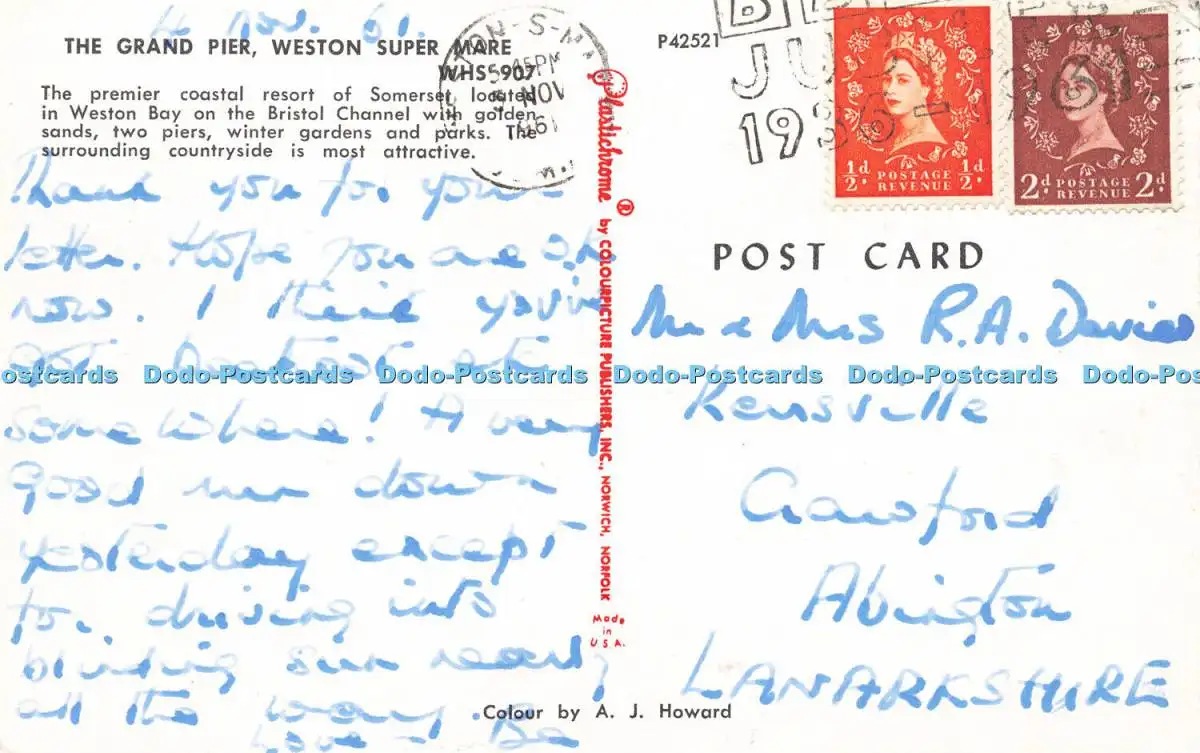 4 Nov. 61.
THE GRAND PIER, WESTON SUPER MARE
WHS-907
The premier coastal resort of Somerset, located
in Weston Bay on the Bristol Channel with golden
sands, two piers, winter gardens and parks. The
surrounding countryside is most attractive.
Thank you for your
letter. Hope you are O.K.
now. I think you've
some where! A very
good run down
yesterday except
for driving into
blinding sun nearly
all the way.
Love
Colour by A. J. Howard
Plastichrome ® by COLOURPICTURE PUBLISHERS, INC., NORWICH, NORFOLK
Made
in
U.S.A.
TON-S-MA
5 45PM
NOV
1961
P42521
JU
1936-1961
½d POSTAGE REVENUE ½d
2d POSTAGE REVENUE 2d
POST CARD
Mr & Mrs R.A. Davies
Crawford
Abington
LANARKSHIRE
Dodo-Postcards Dodo-Postcards Dodo-Postcards Dodo-Postcards